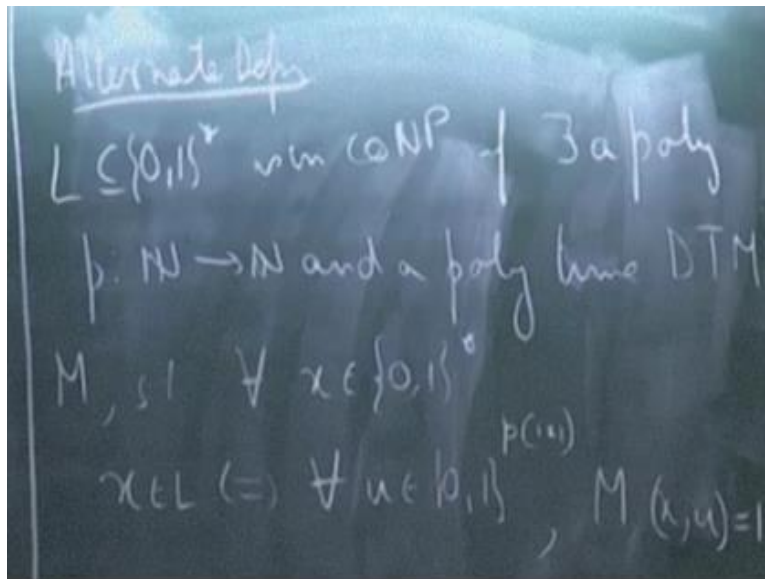 Alternate Defn
L ⊆ {0,1}* is in coNP if ∃ a poly
p: ℕ → ℕ and a poly time DTM
M, st ∀ x ∈ {0,1}*
x ∈ L ⇔ ∀ u ∈ {0,1}^p(|x|), M(x,u)=1